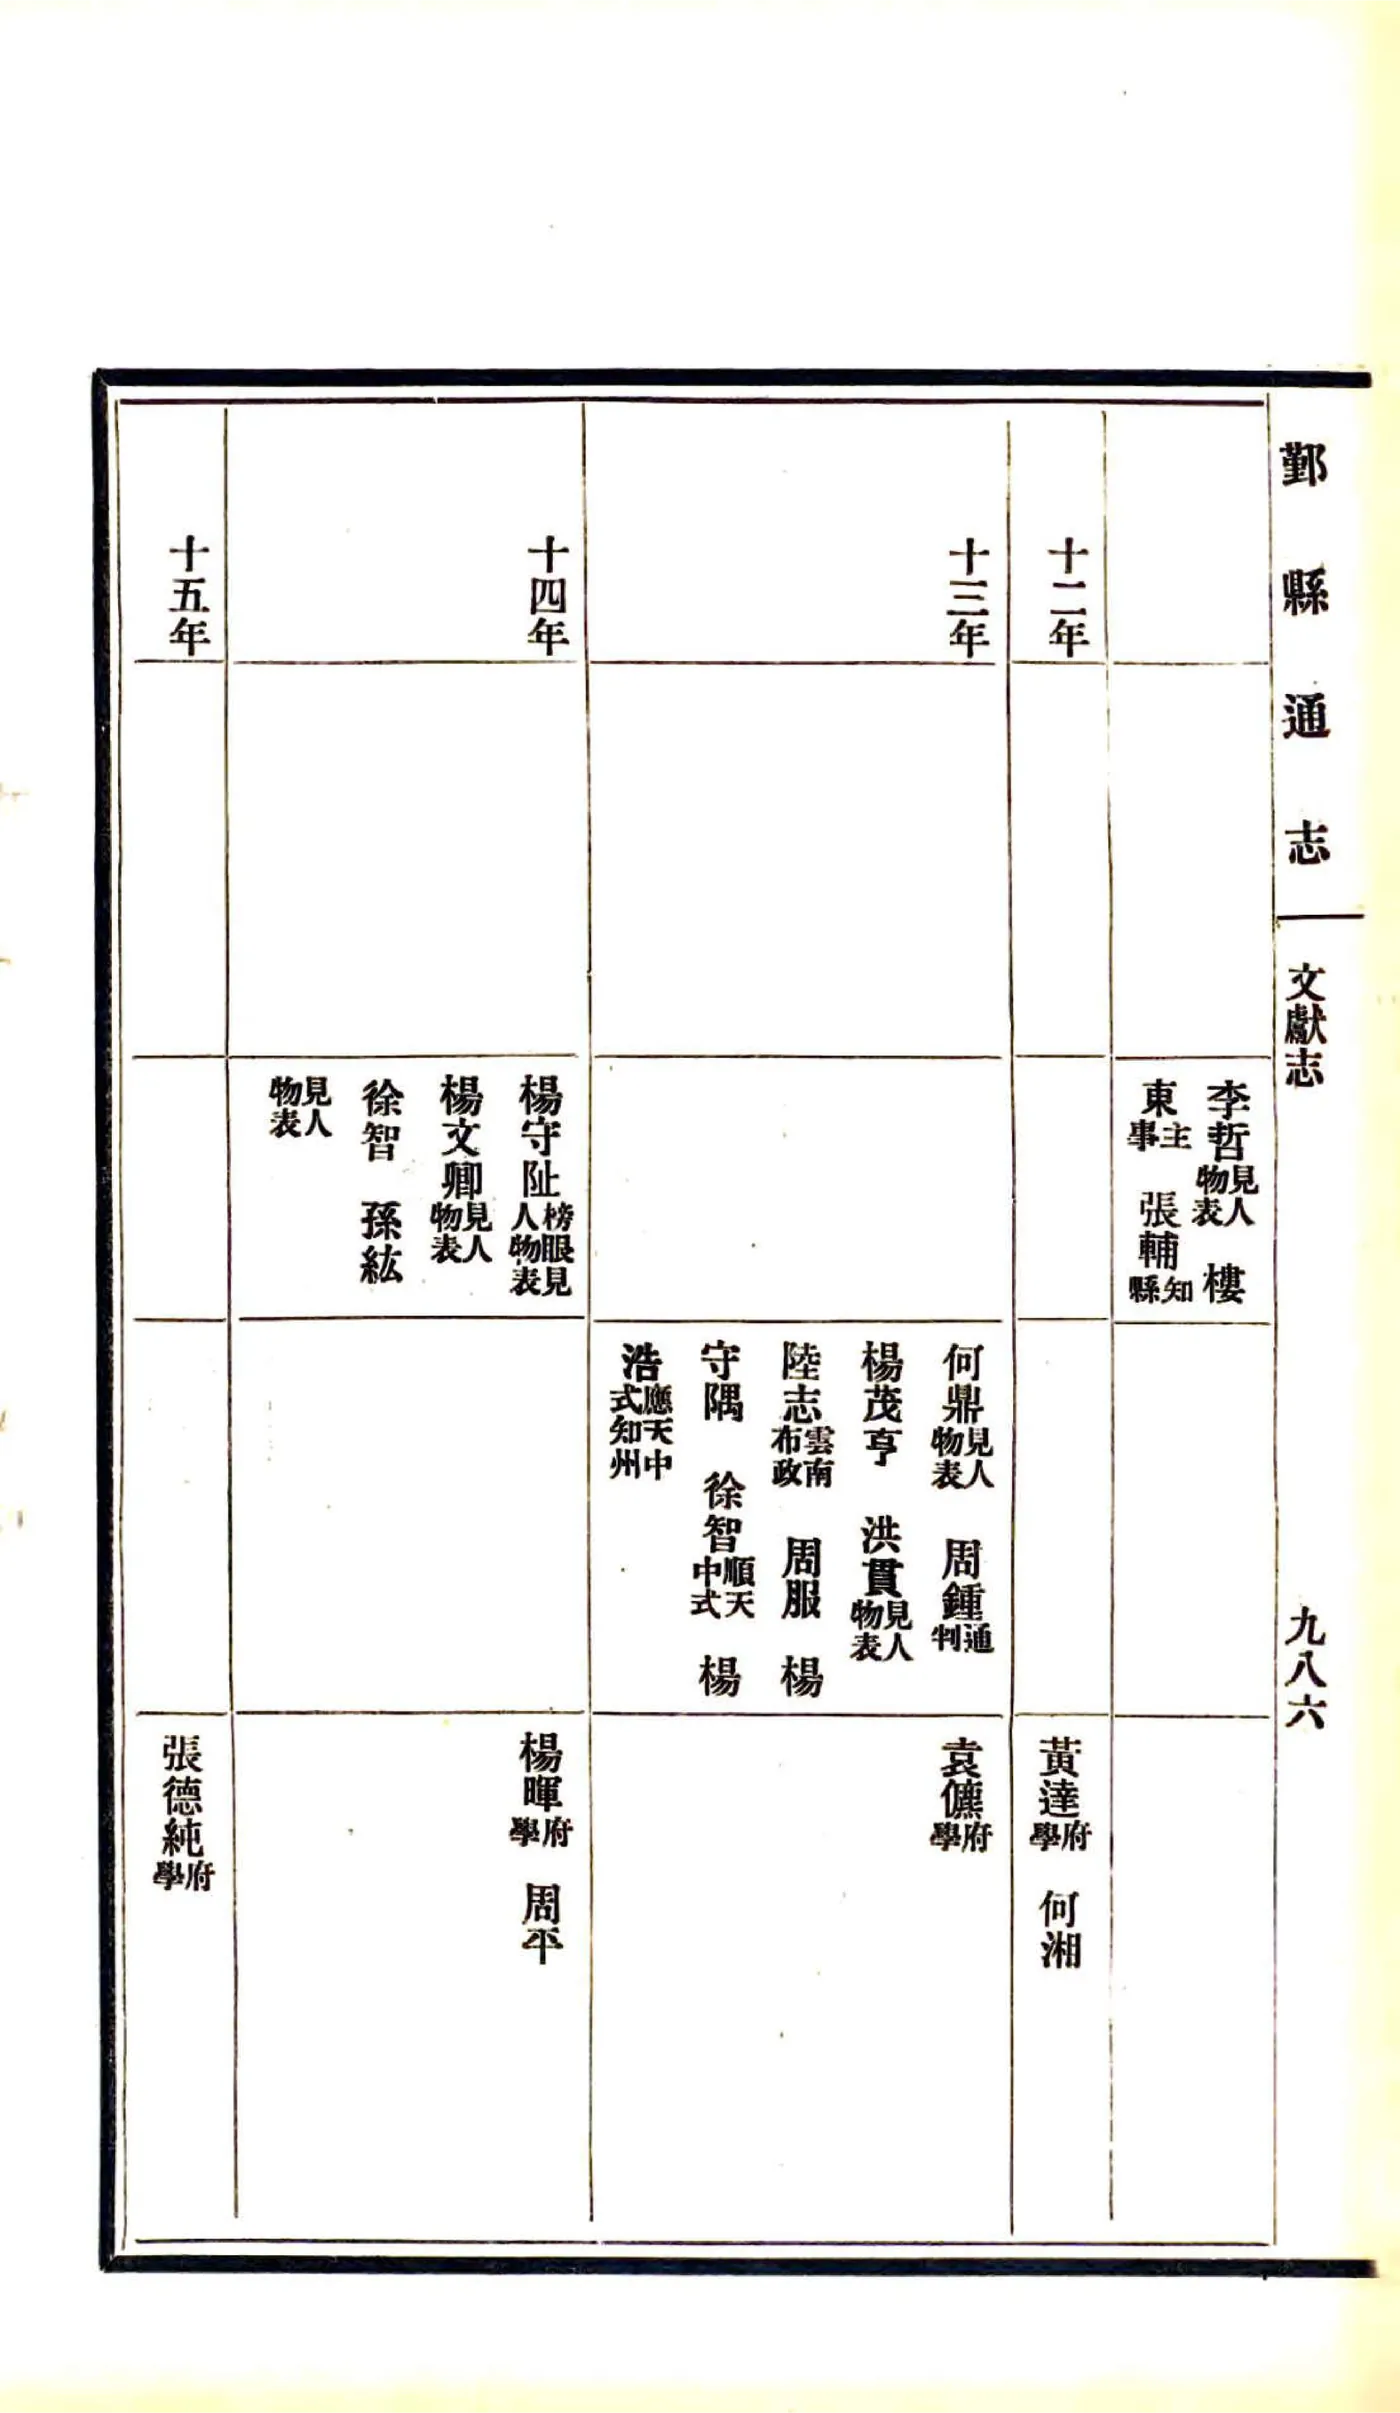 鄞縣通志
文獻志
九八六
李哲見人物表 樓
東主事 張輔知縣
十二年
黃達府學 何湘
十三年
何鼎見人物表 周鍾通判
楊茂亨 洪貫見人物表
陸志雲南布政 周服 楊
守隅 徐智順天中式 楊
浩應天中式知州
袁儦府學
十四年
楊守阯榜眼見人物表
楊文卿見人物表
徐智 孫紘
見人物表
楊暉府學 周平
十五年
張德純府學